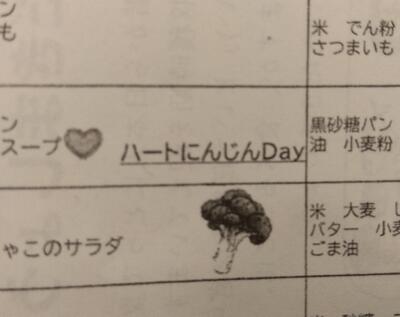 ン
も
米 でん粉
さつまいも
ン
スープ ハートにんじんDay
黒砂糖パン
油 小麦粉
ゃこのサラダ
米 大麦 し
バター 小麦
ごま油